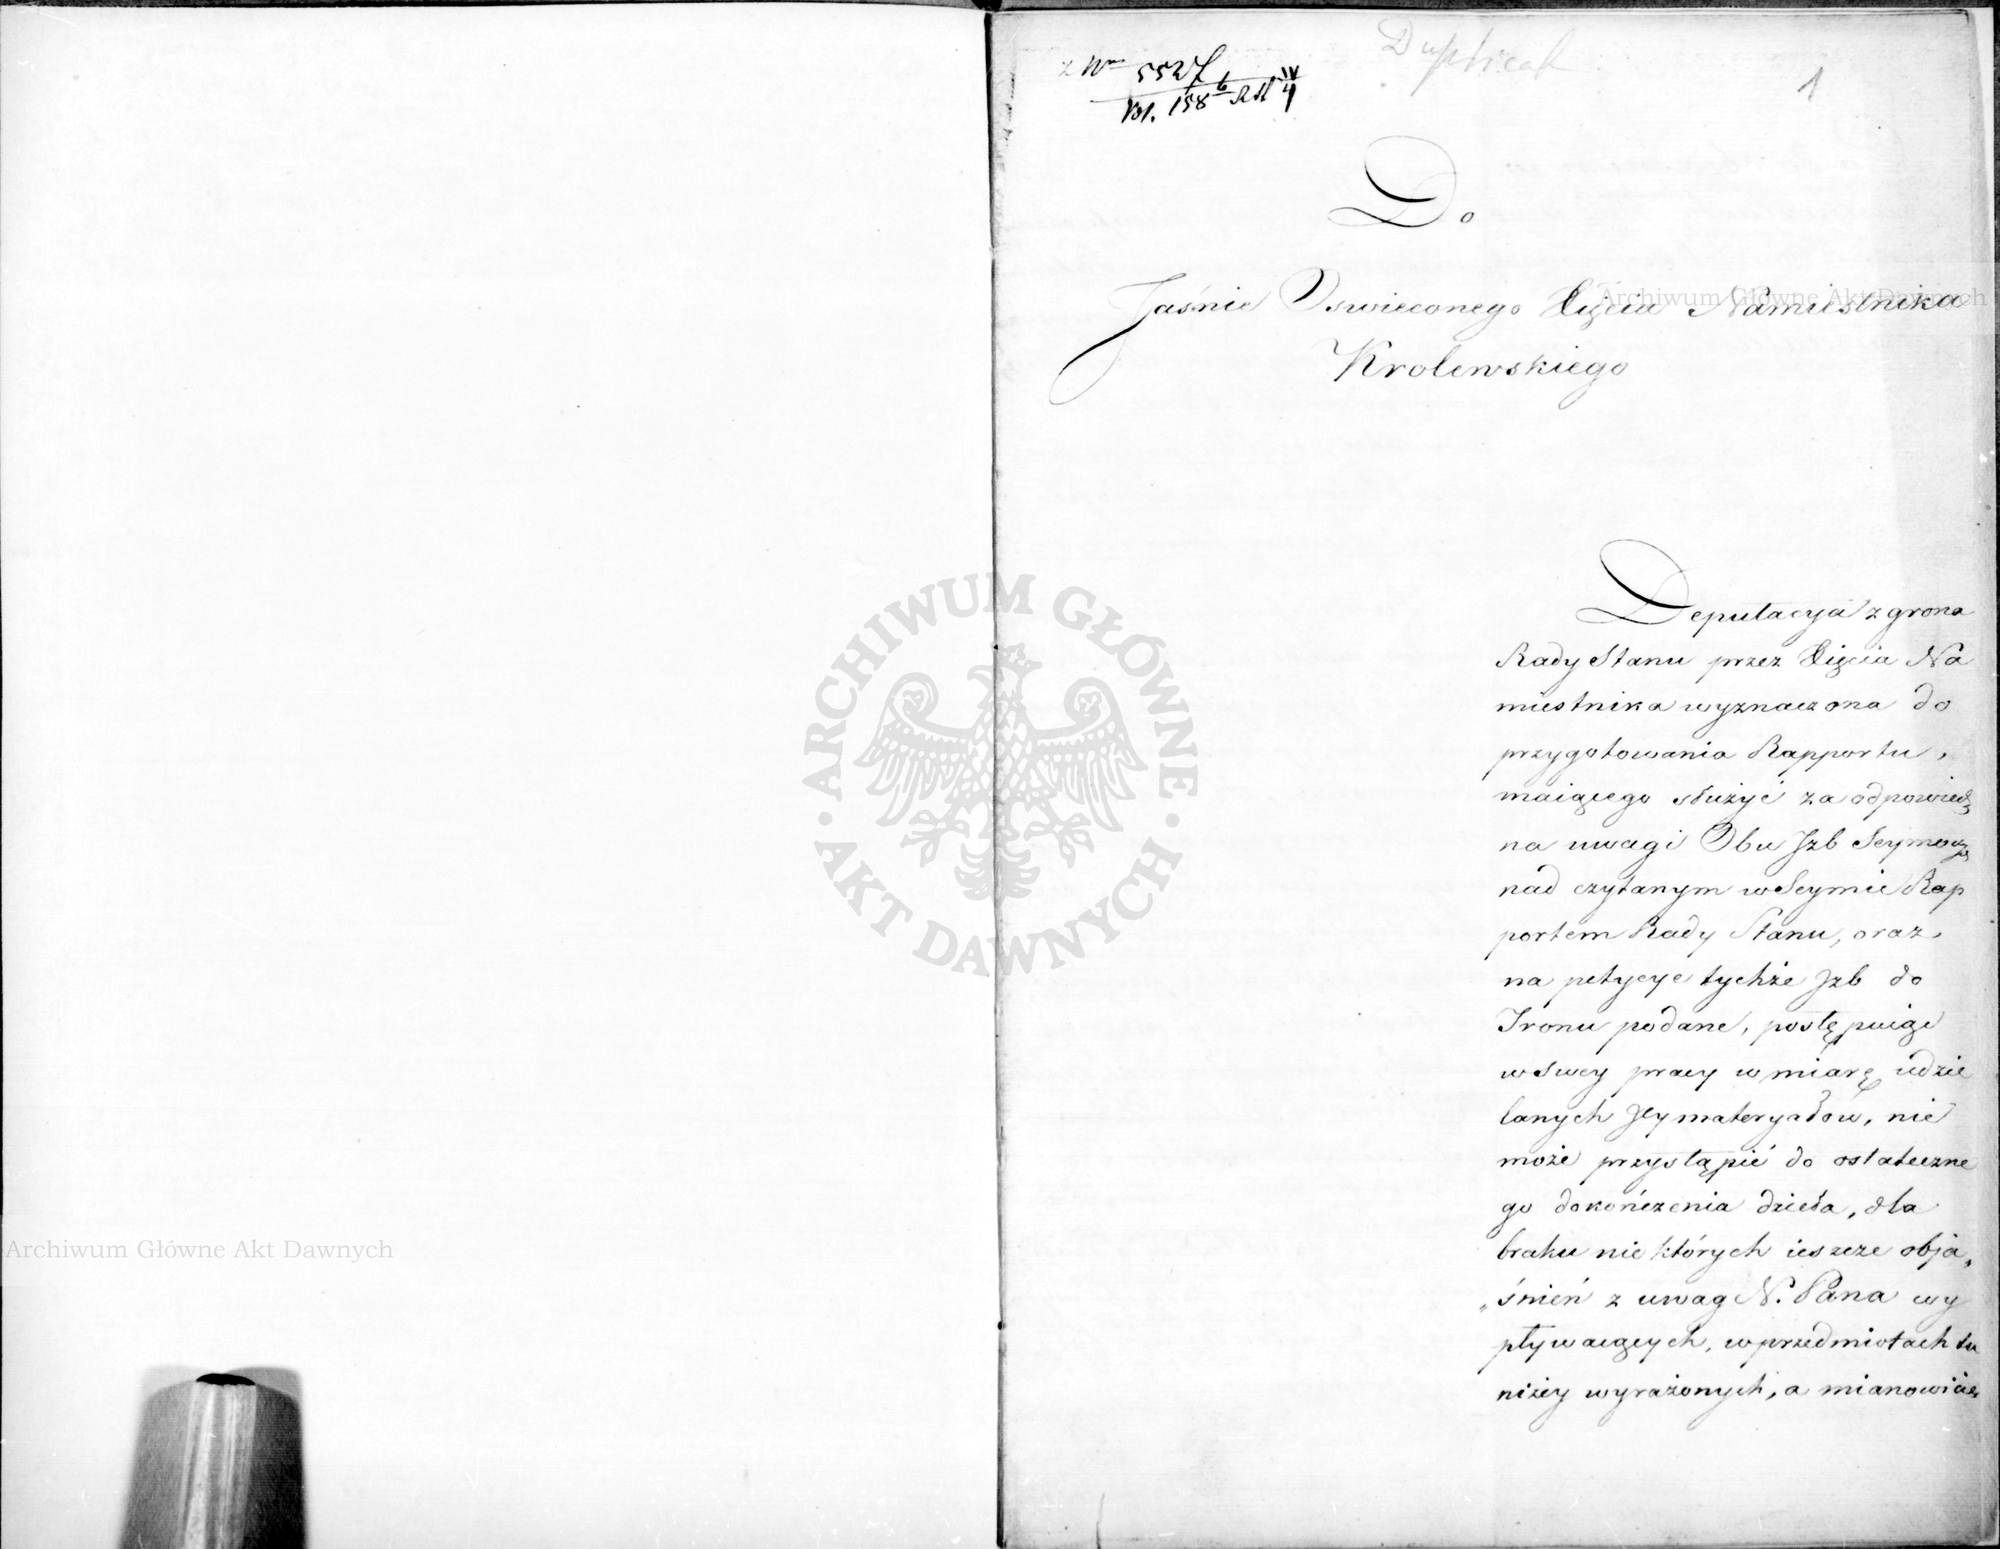 Duplicat
1
Vol. 158
Do
Jaśnie Oswieconego Xięcia Namiestnika
Krolewskiego
Deputacya z grona
Rady Stanu przez Xięcia Na
miestnika wyznaczona do
przygotowania Rapportu,
maiącego służyć za odpowiedź
na uwagi Obu Jzb Seymowych
nad czytanym w Seymie Rap
portem Rady Stanu, oraz
na petycye tychże Jzb do
Tronu podane, postępuiąc
w swey pracy w miarę udzie
lanych Jey materyałów, nie
może przystąpić do ostateczne
go dokończenia dzieła, dla
braku nie których ieszcze obja„
„śnień z uwag N. Pana wy
pływaiących, w przedmiotach tu
niżey wyrażonych, a mianowicie
ARCHIWUM GŁÓWNE
AKT DAWNYCH
Archiwum Główne Akt Dawnych
Archiwum Główne Akt Dawnych